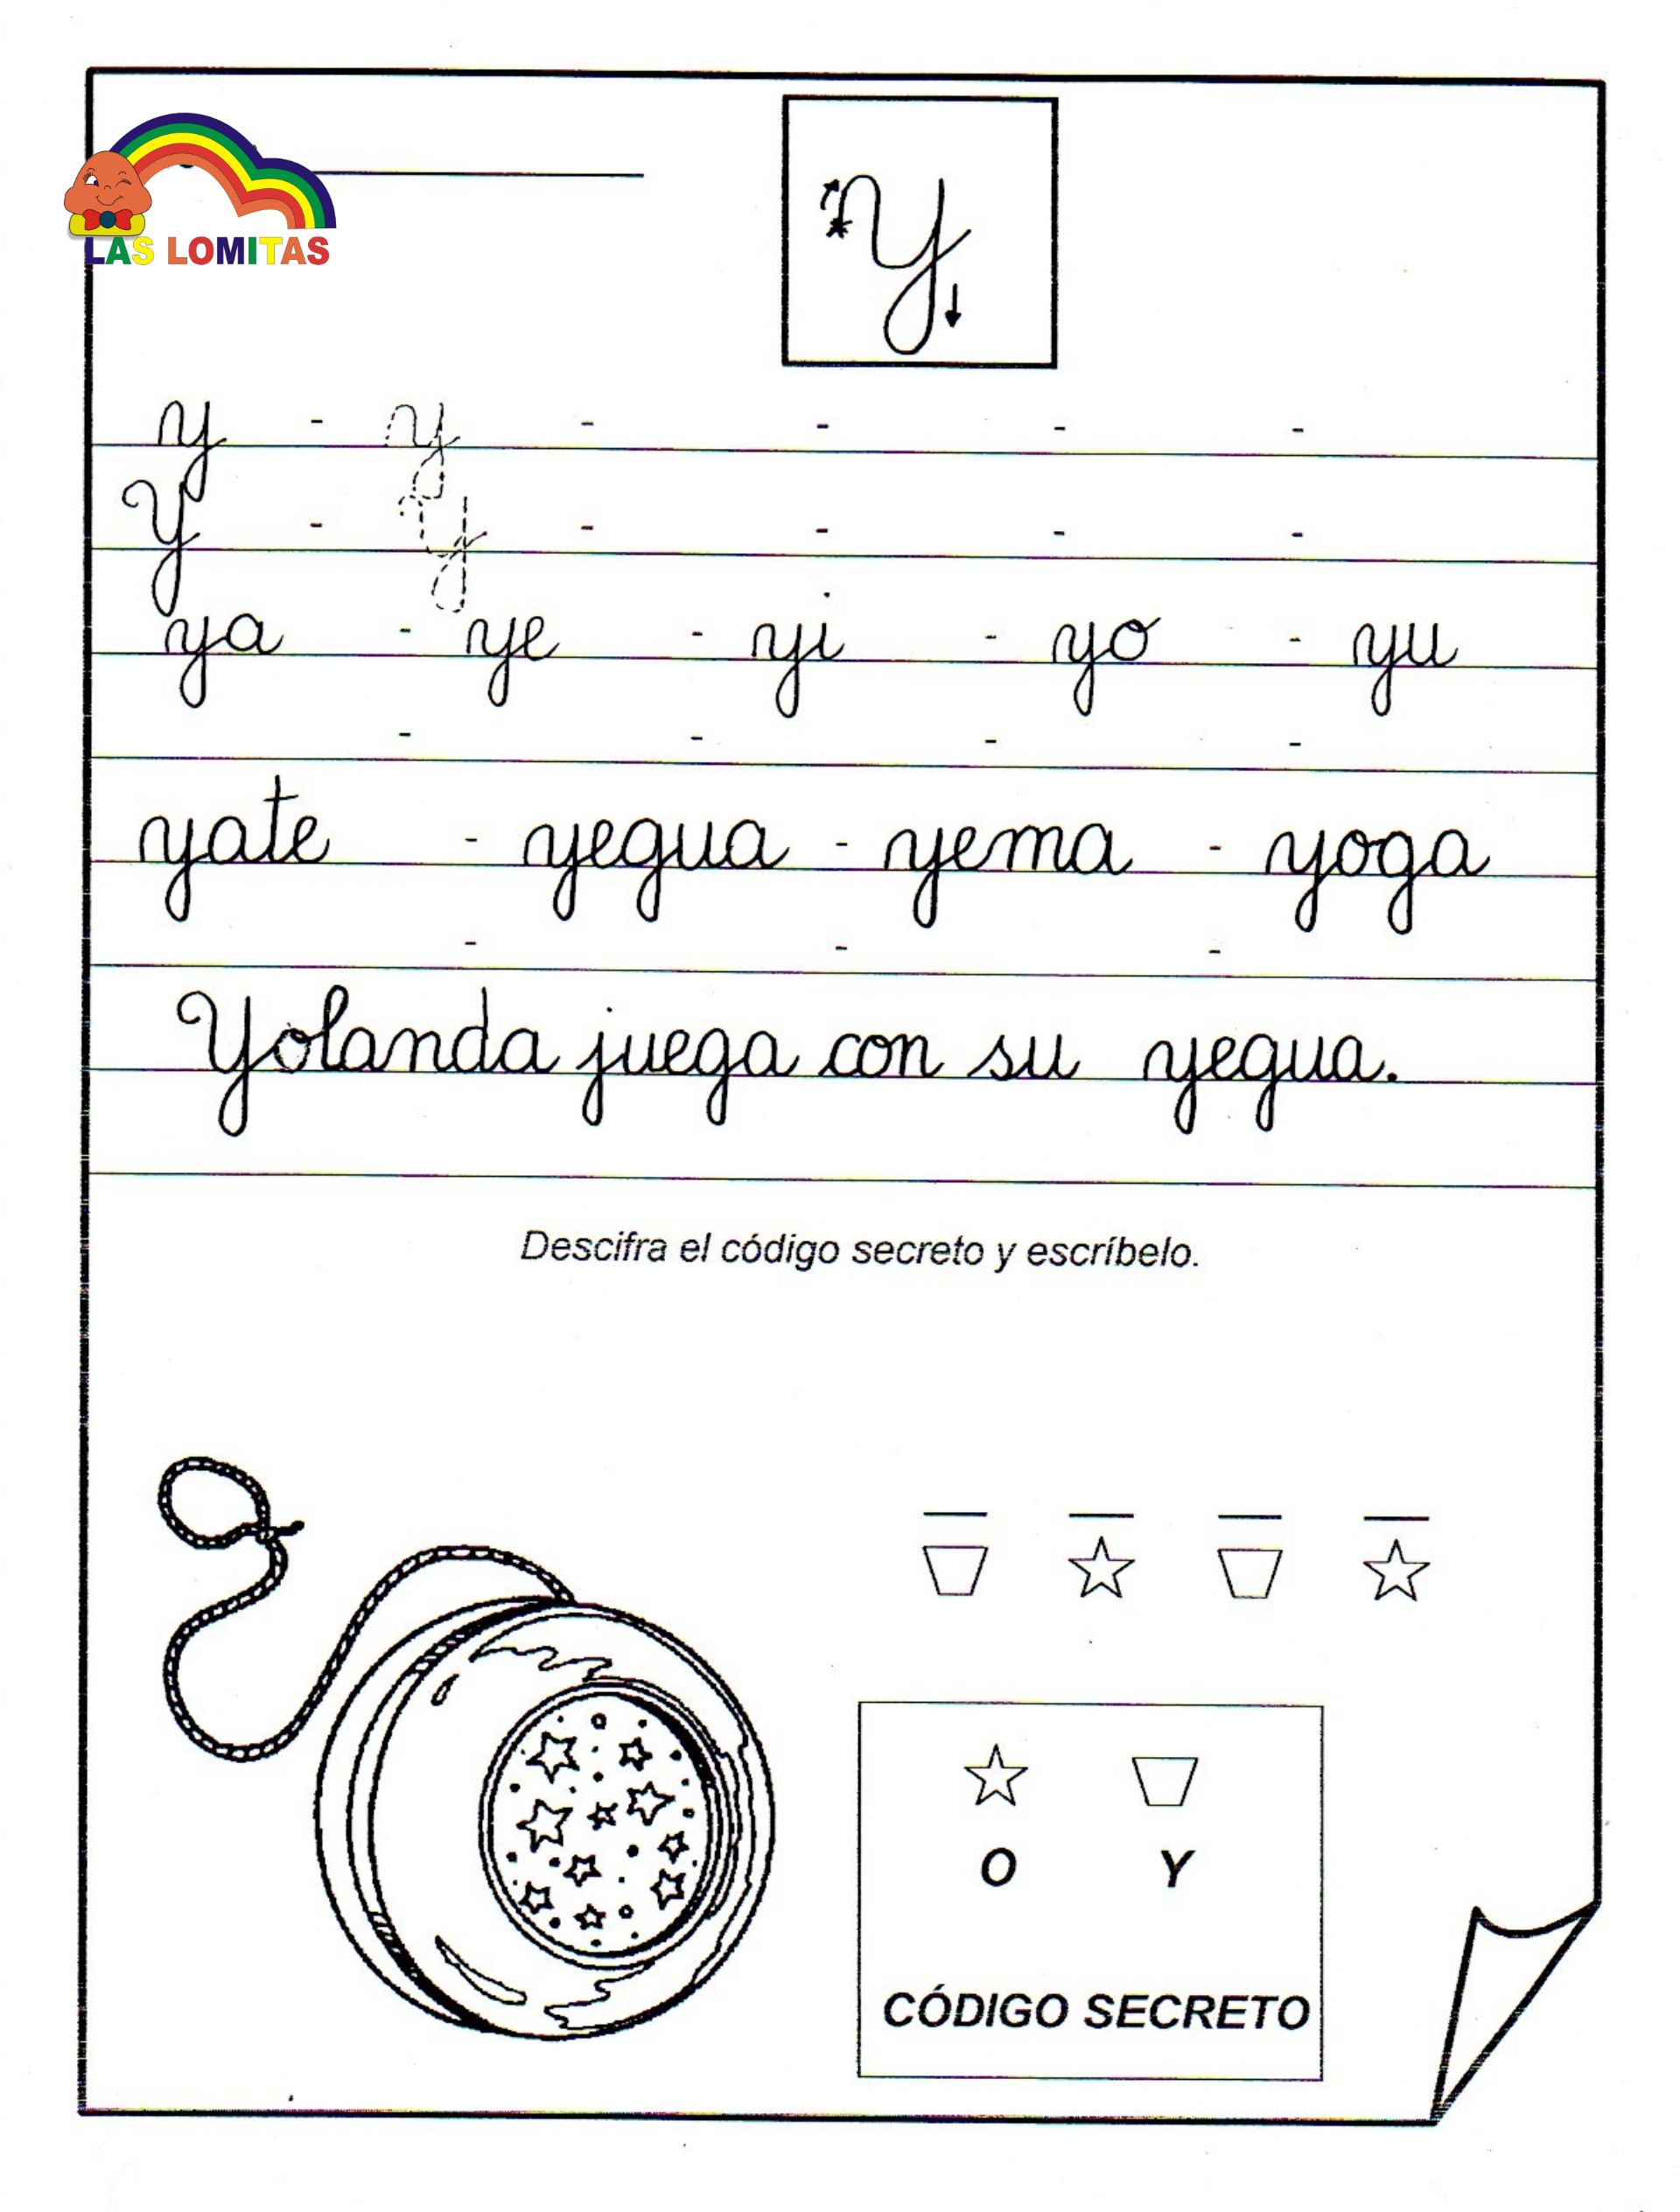 LAS LOMITAS
y
y - y - - - -
Y - Y - - - -
ya - ye - yi - yo - yu
- - - -
yate - yegua - yema - yoga
- - -
Yolanda juega con su yegua.
Descifra el código secreto y escríbelo.
O Y
CÓDIGO SECRETO